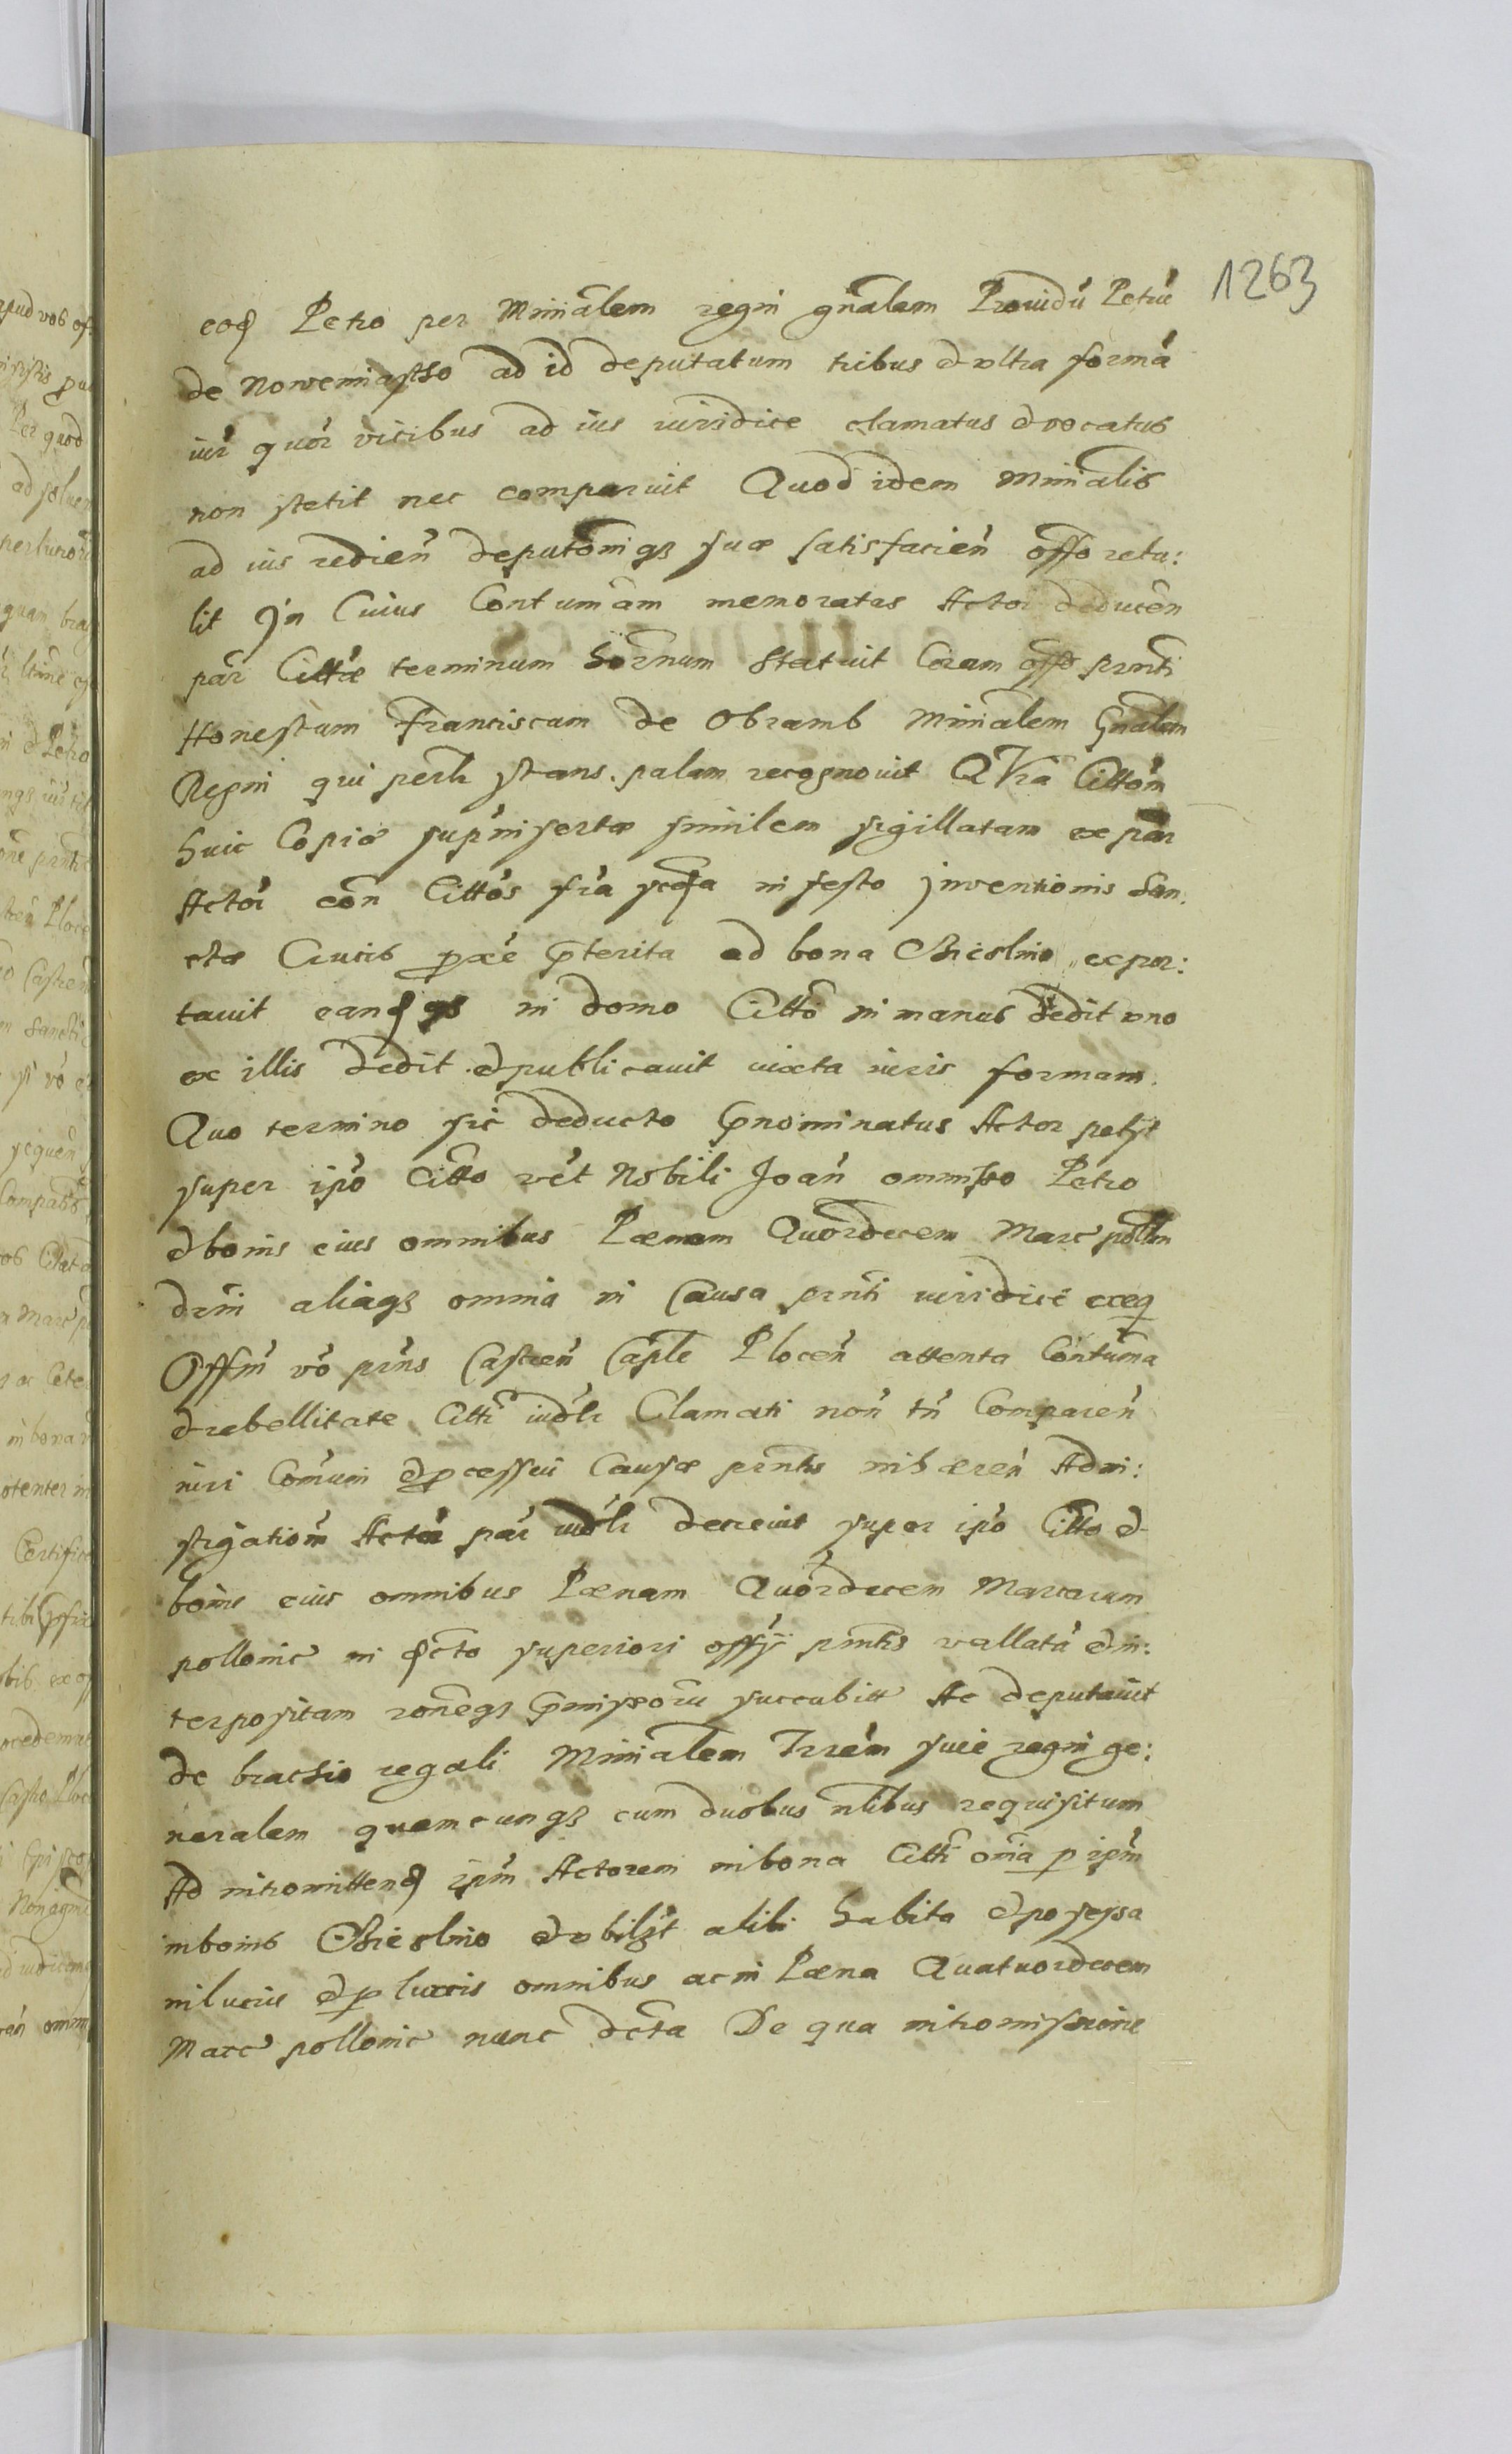 1263
eod Petro per Minialem regni gnalem Prouidu Petru
de Nowemiastho ad id deputatum tribus et vltra forma
iur quor vicibus ad ius iuridice clamatus et vocatus
non stetit nec comparuit Quod idem Minialis
ad ius redien deputoniqz suæ satisfacien offo retu:
lit In Cuius Contumam memoratus Actor deducen
par Cittæ terminum hornum Statuit Coram offo prnti
Honestum Franciscum de Obramb Minialem Gnalem
Regni qui perlr stans palam recognouit Q Vra Cittom
huic Copiæ suprinsertæ similem sigillatam ex par
Actor con Cittos fria scda in festo Inventionis San
ctæ Crucis pxe præterita ad bona Chicolnio expor:
tauit eandqz in domo Citto in manus dedit vno
ex illis dedit et publicauit iuxta iuris formam.
Quo termino sic deducto prænominatus Actor petyt
super ipo Citto vet Nobili Joan ommisso Petro
et bonis eius omnibus Pænam Quordecem Marc pollin
drni aliaqz omnia in Causa prnti iuridice exeq
Offm vo prns Castren Caple Plocen attenta Contuma
et rebellitate Citti iudlr Clamati non tn Comparen
iuri Comuni et pcessui Causæ prntis inhæren Ad in:
stigatiom Actor par iudlr decreuit super ipo Citto et
bonis eius omnibus Pænam Quordecem Marcarum
pollonic in dcto superiori offy prntis vallata et in:
terpositam ronegz præmissoru succubitt Ac deputauit
de brachio regali Minialem Trrem siue regni ge:
neralem quemcunqz cum duobus nlibus requisitum
Ad intromittend ipm Actorem in bona Citti onia p ipm
in bonis Chicolnio et vbilzt alibi habita et possessa
in lucris et p lucris omnibus ac in Pæna Quatuordecem
Marc pollonic nunc dcta De qua intromissione